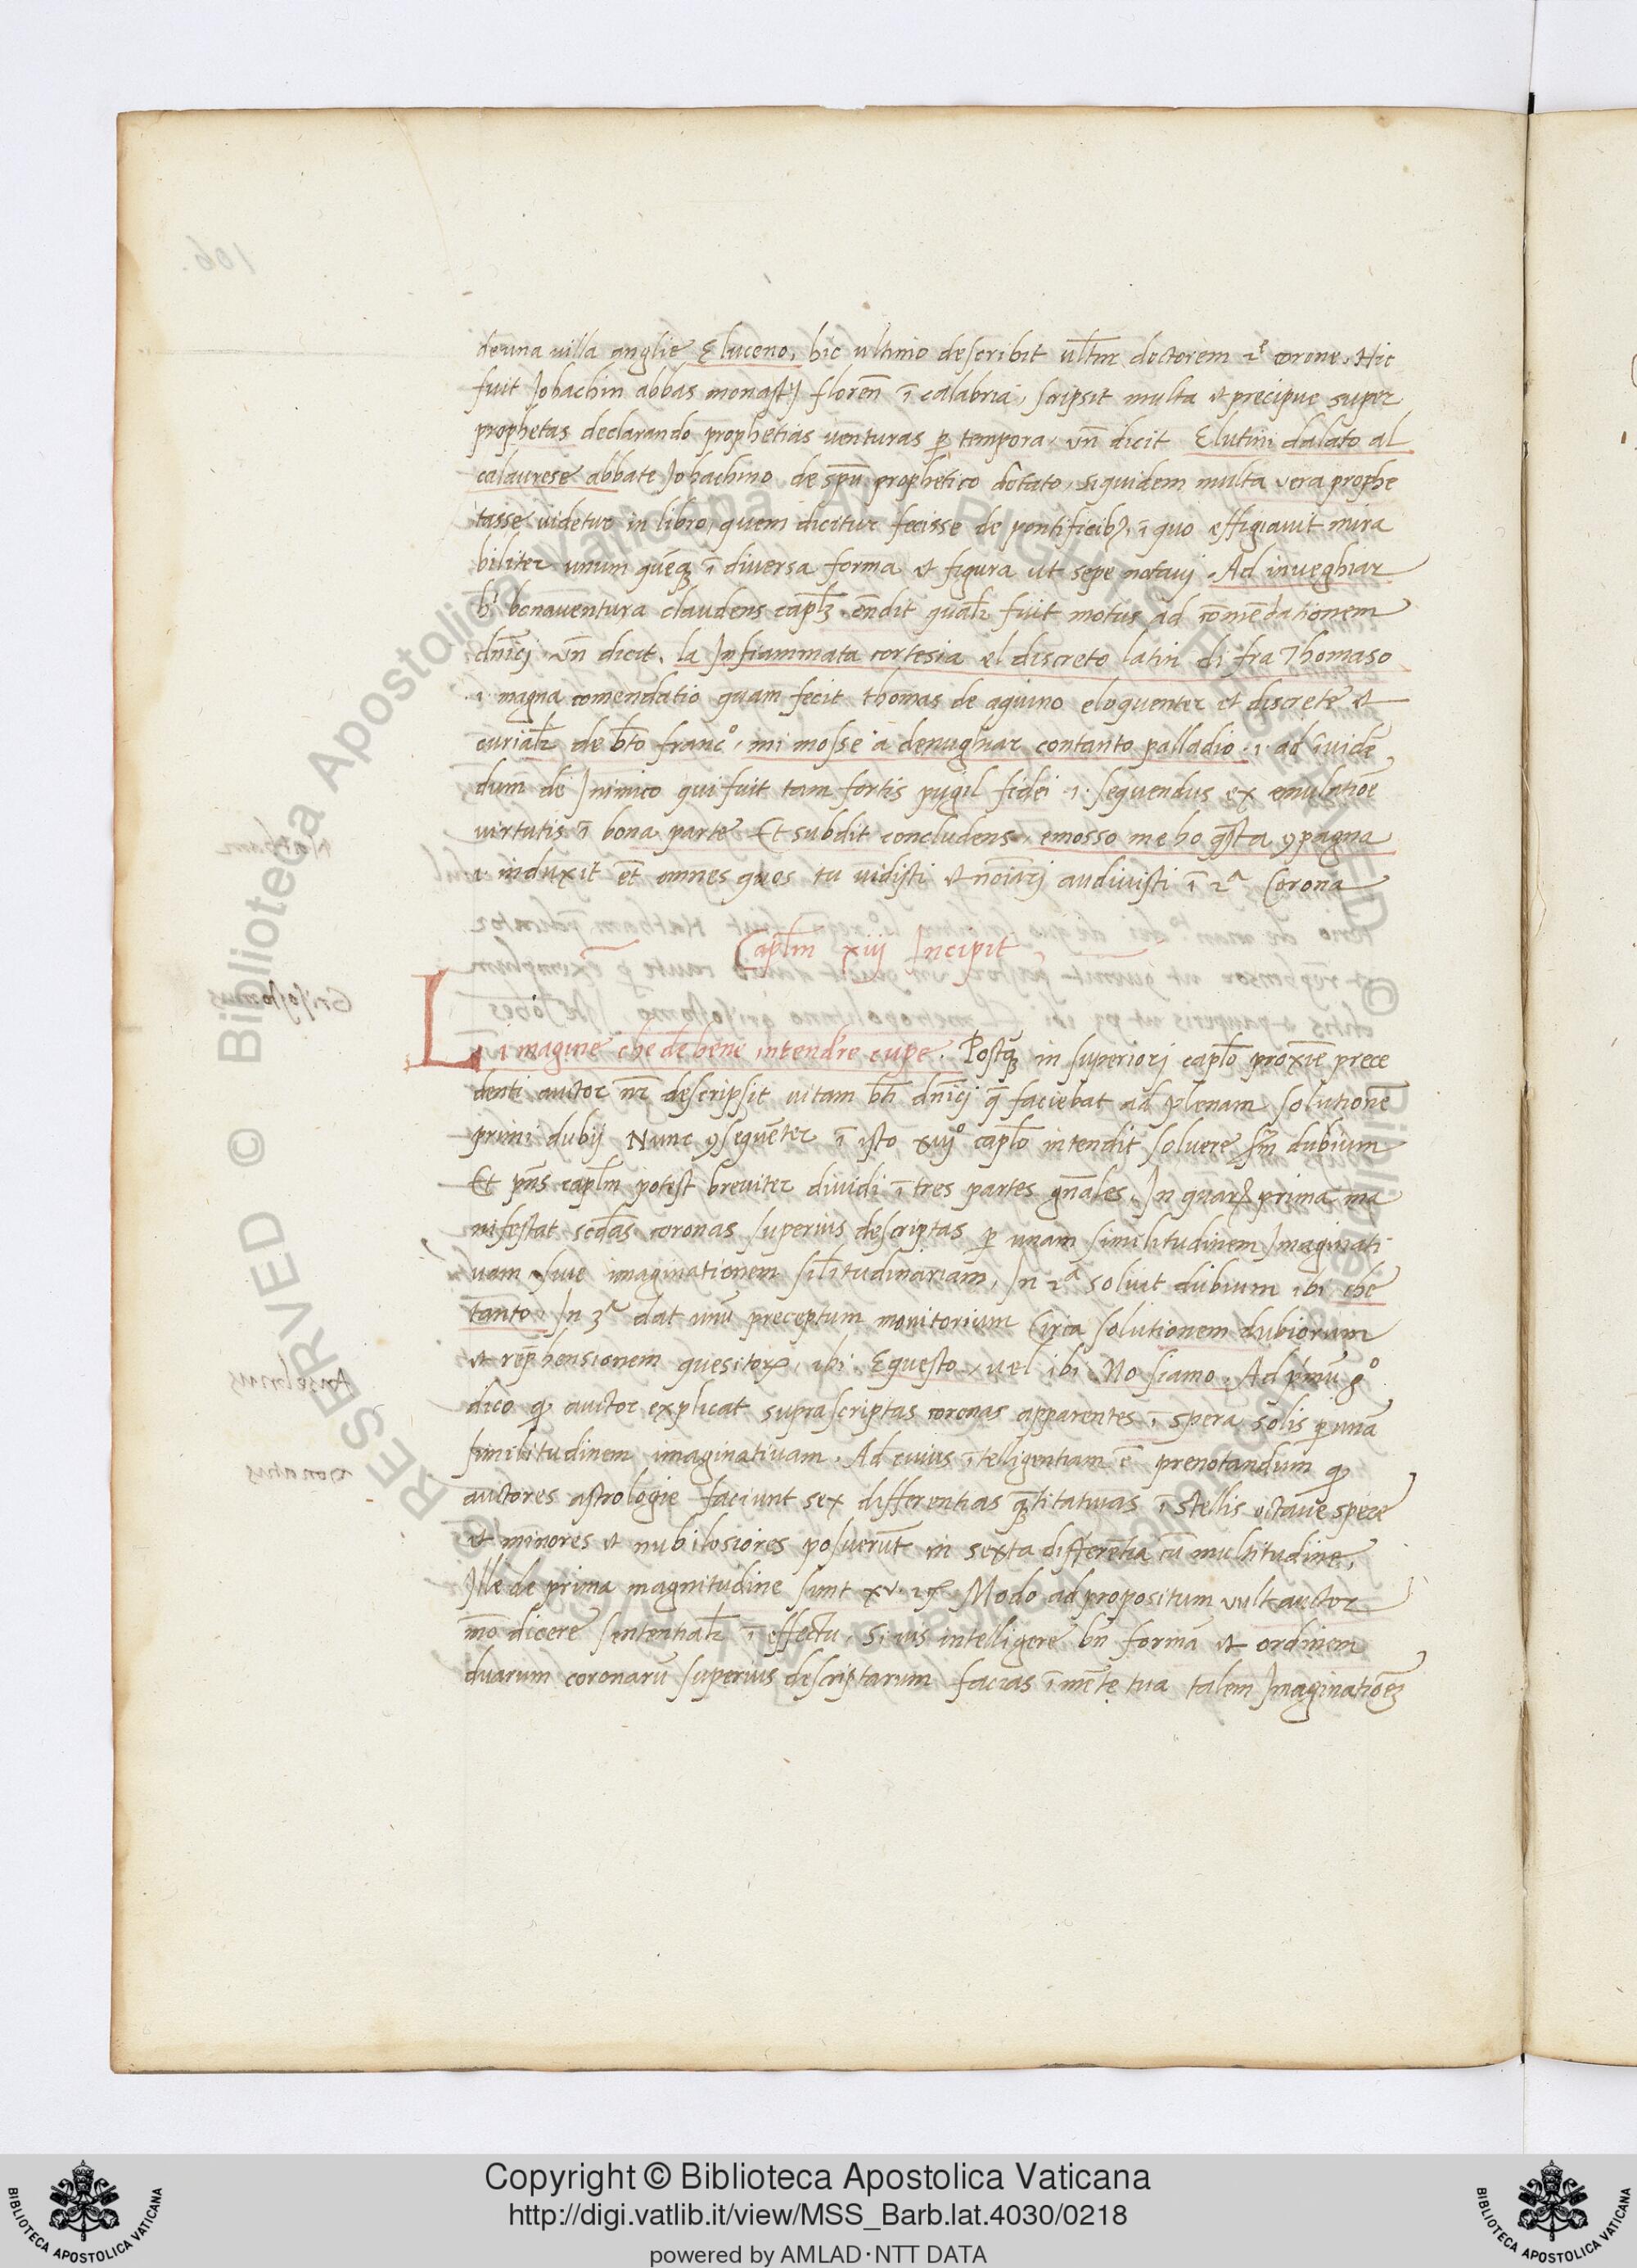 de una villa anglie Eluceno, hic ultimo describit ultim̄ doctorem 2e corone, Hic
fuit Johachin abbas monast̄ij floren̄ ī calabria, scripsit multa et precipue super
prophetas declarando prophetias venturas p̱ tempora, vn̄ dicit Elutini dalato al
calavrese abbate Johachino de sp̄u prophetico dotato, siquidem multa vera prophe
tasse videtur in libro, quem dicitur fecisse de pontificibꝫ, ī quo effigiavit mira
biliter unum quēqꝫ ī diversa forma et figura ut sepe notavi. Ad inveghiar
bonaventura claudens capl̄ꝫ. ēndit qual̄r fuit motus ad cōmēdationem
dn̄ici vn̄ dicit. la Infiammata cortesia el discreto latin di fra Thomaso
.i. magna comendatio quam fecit thomas de aquino eloquenter et discrete et
curial̄r de b̄to franc°, mi mosse a denughiar contanto palladio .i. ad īvidē
dum de Inimico qui fuit tam fortis pugil fidei .i. sequendus ex emulatiōe
virtutis ī bona parte Et subdit concludens. emosso me ho q̄sta ꝯpagna
.i. induxit et̄ omnes quos tu vidisti et noīarj audivisti ī 2a Corona
Capl̄m xiij Incipit
Li imagine che de bene intendre cupe. Postqꝫ in superiorj capl̄o proxīe prece
denti auctor nr̄ descripsit vitam bt̄i dn̄icj q̄ faciebat ad plenam solutionē
primi dubij Nunc ꝯsequēter ī isto xiij° capl̄o intendit solvere sm̄ dubium
Et pn̄s capl̄m potest breviter dividi ī tres partes gn̄ales, In quarꝝ prima ma
nifestat scd̄as coronas superius descriptas p̱ unam similitudinem Imaginati
vam sive imaginationem sil̄itudinariam, In 2a solvit dubium ibi che
tanto. In 3a dat unū preceptum monitorium Circa solutionem dubiorum
et rep̄hensionem quesitorꝝ, ibi. Equesto, vel ibi No siamo. Ad p̄imū g°
dico ꝙ auctor explicat suprascriptas coronas apparentes ī spera solis p̱ unā
similitudinem imaginativam. Ad cuius ītelligentiam ē prenotandum ꝙ
auctores astrologie faciunt sex differentias q̄titativas ī stellis octave spere
et minores et nubilosiores posuerūt in sexta differentia cū multitudine,
Ille de prima magnitudine sunt xv. Modo ad propositum vult auctor
īmo dicere sentential̄r ī effectu, Si vis intelligere bn̄ formā et ordinem
duarum coronarū superius descriptarum facias ī mēte tua talem Imaginatiōeꝫ
Copyright © Biblioteca Apostolica Vaticana
http://digi.vatlib.it/view/MSS_Barb.lat.4030/0218
powered by AMLAD·NTT DATA
BIBLIOTECA APOSTOLICA VATICANA
BIBLIOTECA APOSTOLICA VATICANA